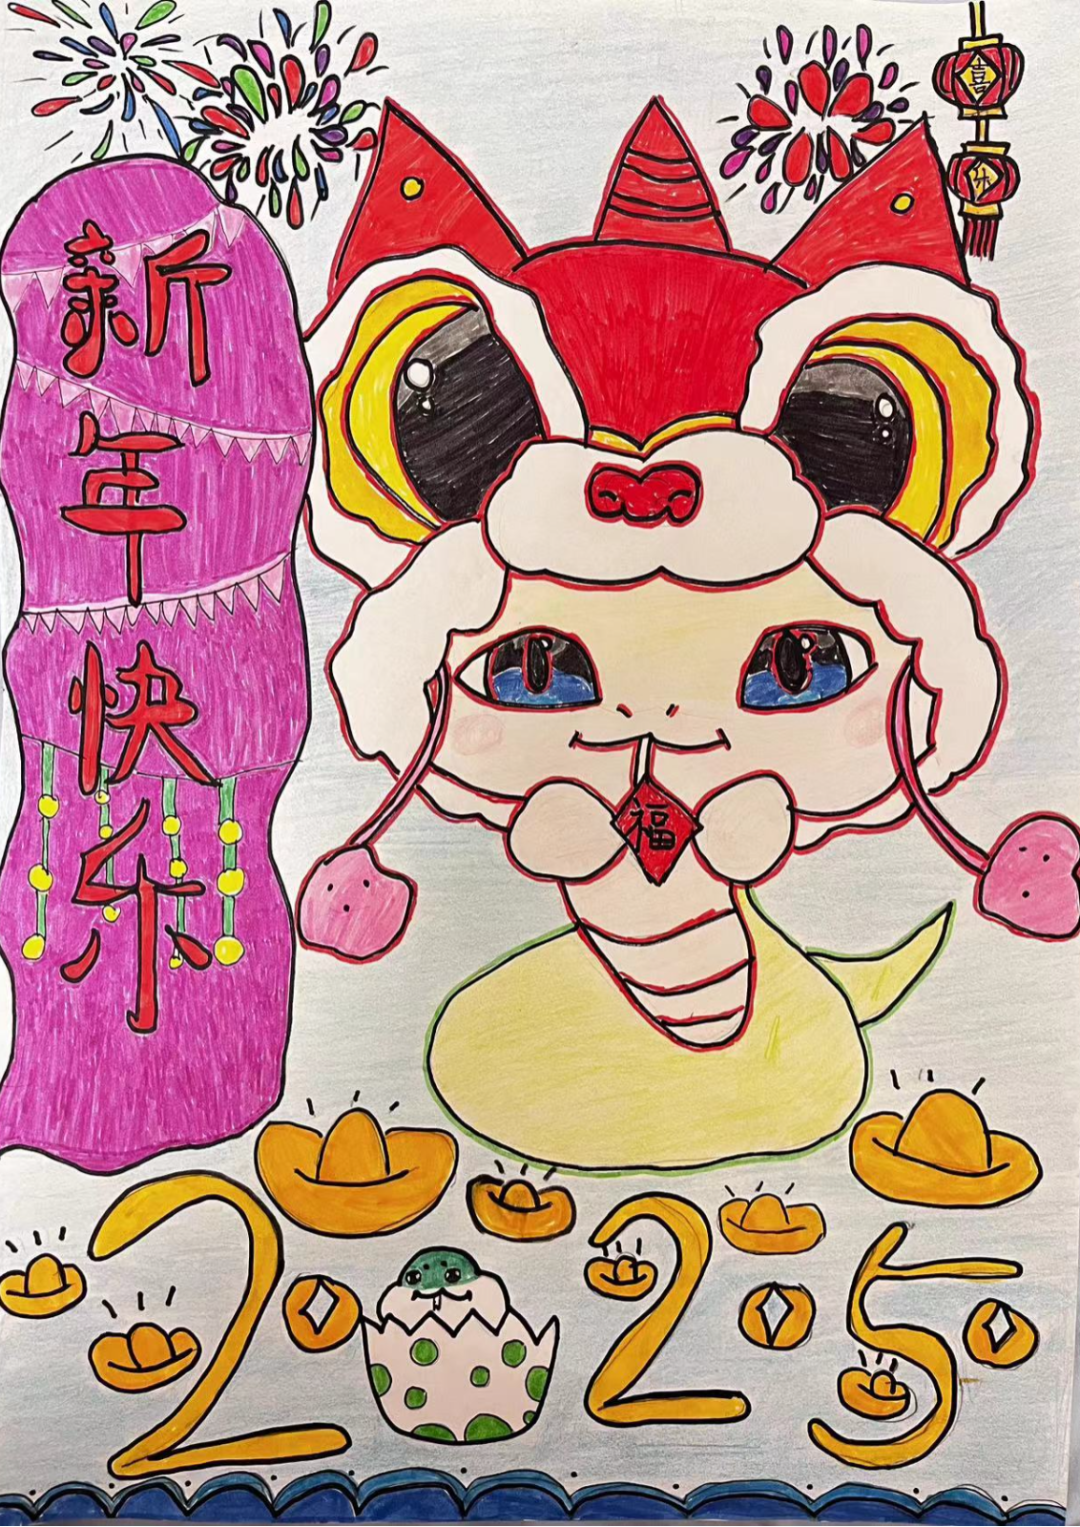 新年快乐
喜
乐
福
2025